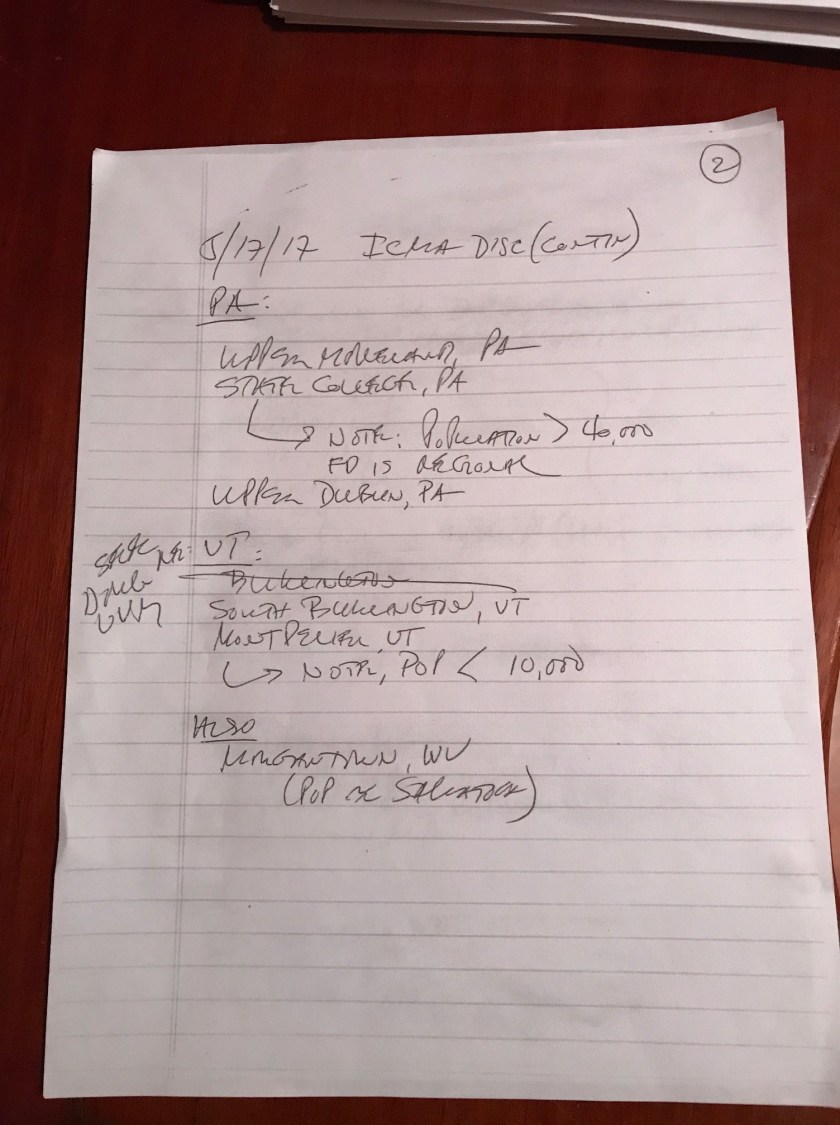 2
5/17/17 ICMA DISC (CONTIN)
PA:
UPPER MORELAND, PA
STATE COLLEGE, PA
NOTE: POPULATION > 40,000
FD IS REGIONAL
UPPER DUBLIN, PA
VT:
BURLINGTON
SOUTH BURLINGTON, VT
MONTPELIER, VT
NOTE, POP < 10,000
ALSO
MORGANTOWN, WV
(POP OF